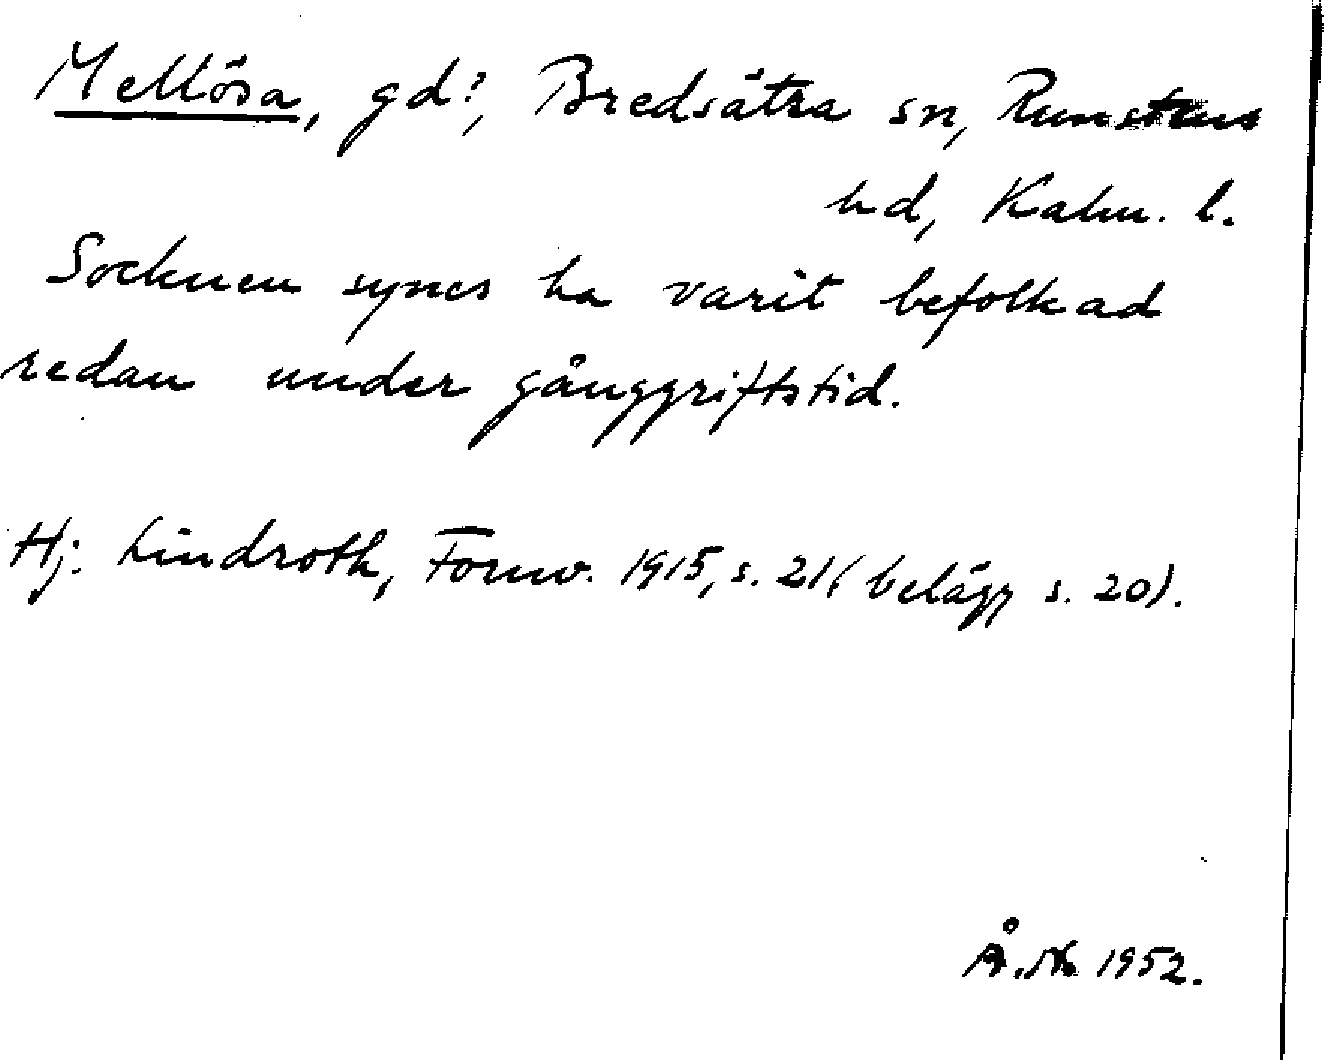 Mellösa, gd?, Bredsätra sn, Runstens
hd, Kalm. l.
Socknen synes ha varit befolkad
redan under gånggriftstid.
Hj. Lindroth, Fornv. 1915, s. 21 (belägg s. 20).
Å. N. 1952.